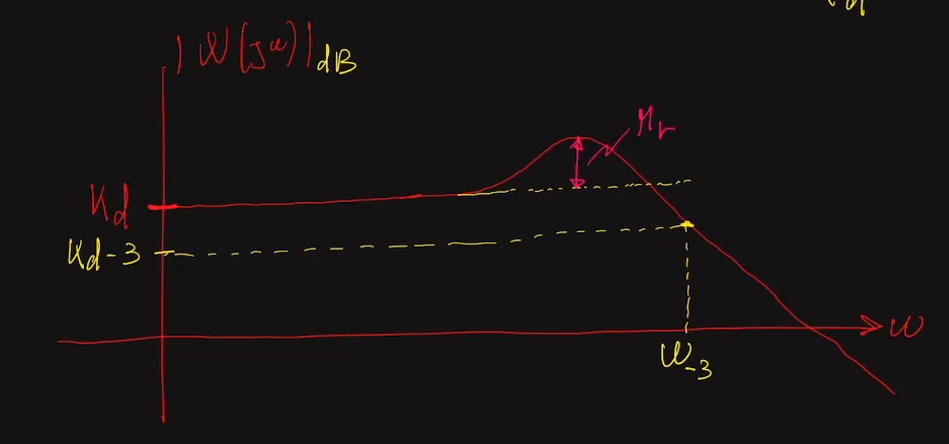 |W(jω)|dB
Mr
Kd
Kd-3
ω
ω-3